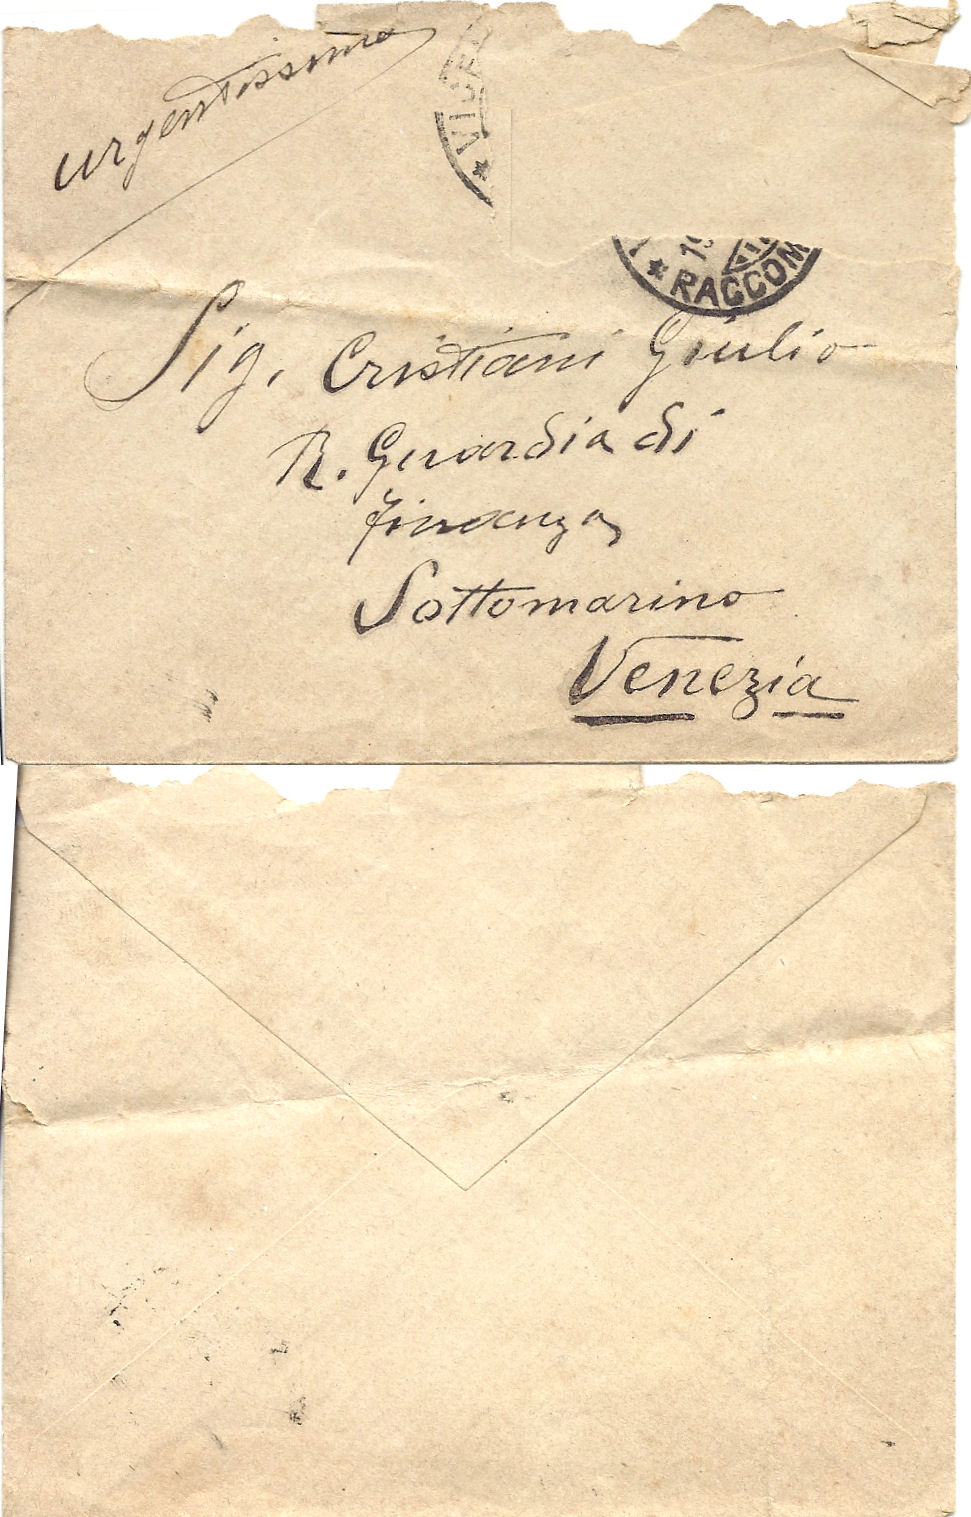 urgentissima
VICE
19
RACCOM
Sig. Cristiani Giulio
R. Guardia di
finanza
Sottomarino
Venezia